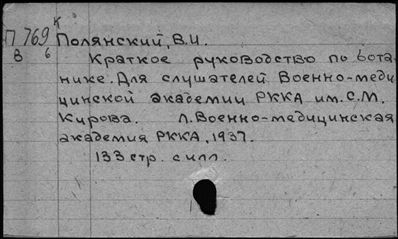 К
П 769 Полянский, В.И.
В 6 Краткое руководство по бота-
нике. Для слушателей Военно-меди-
цинской академии РККА им. С.М.
Кирова. Л. Военно-медицинская
академия РККА, 1937.
133 стр. с илл.